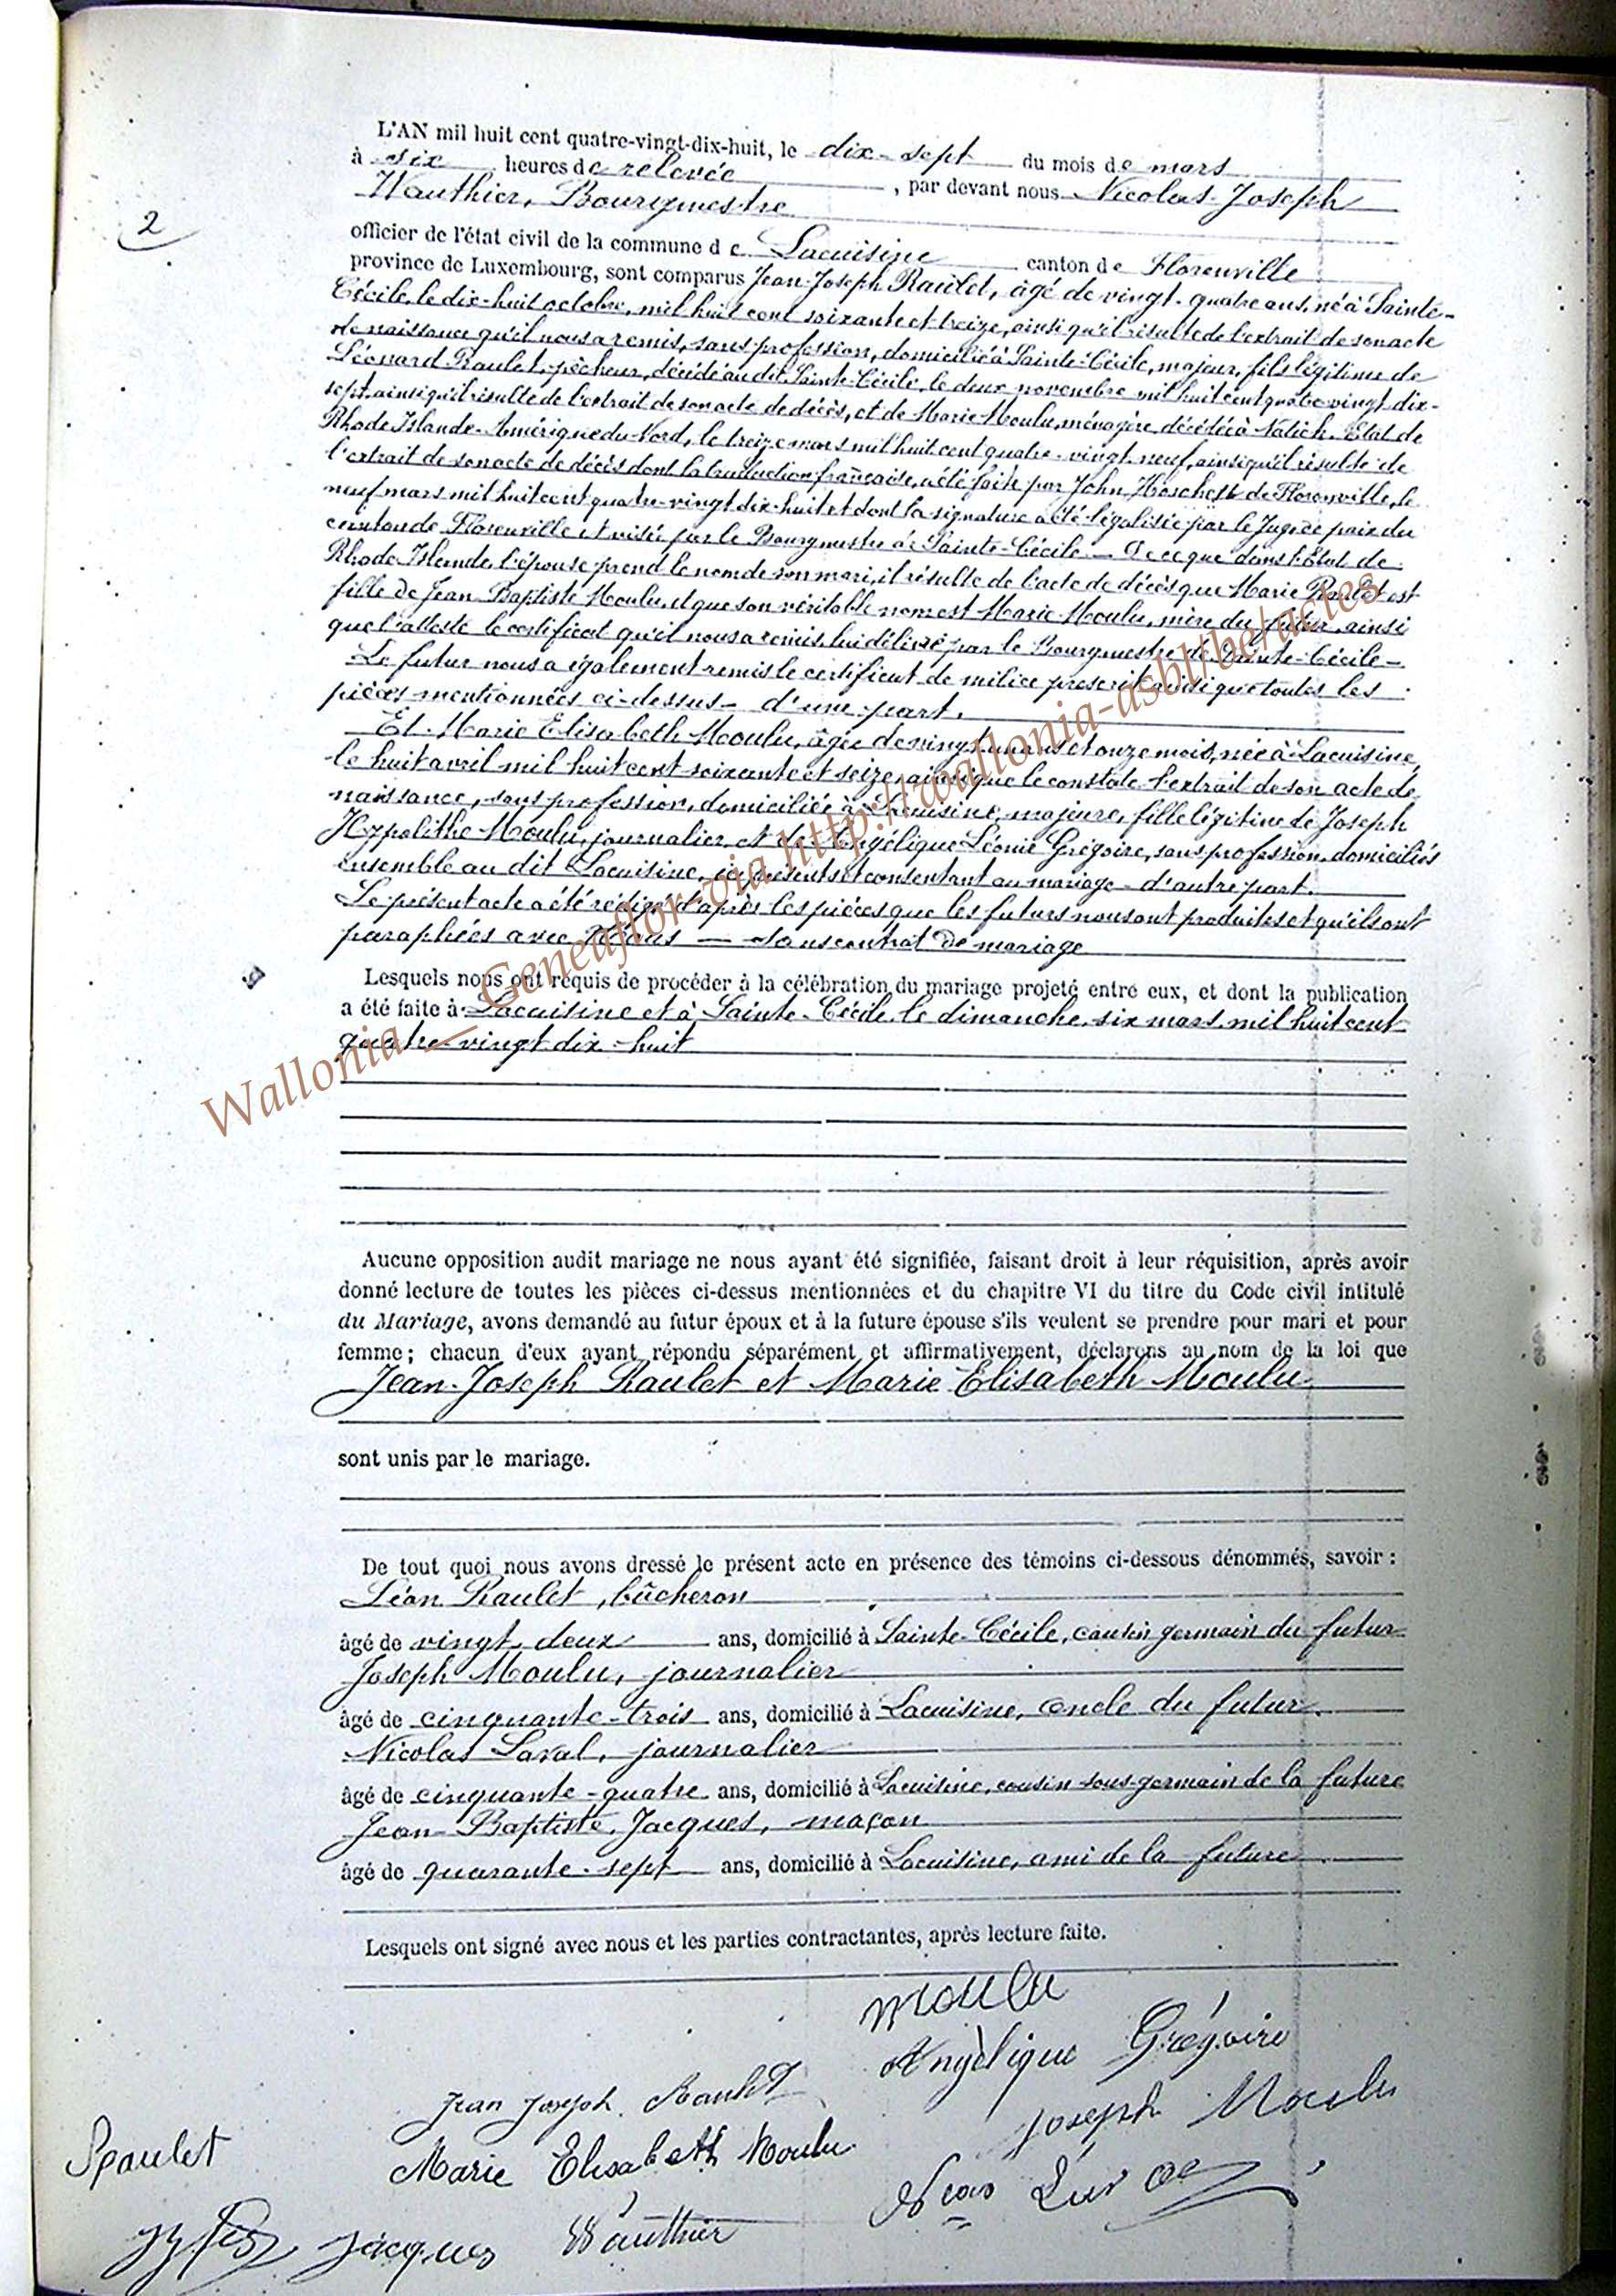 L'AN mil huit cent quatre-vingt-dix-huit, le dix-sept du mois de mars
à six heures de relevée, par devant nous Nicolas-Joseph
Wauthier, Bourgmestre
2
officier de l'état civil de la commune de Lacuisine canton de Florenville
province de Luxembourg, sont comparus Jean-Joseph Raulet, âgé de vingt-quatre ans, né à Sainte-
Cécile, le dix-huit octobre, mil huit cent soixante et treize, ainsi qu'il résulte de l'extrait de son acte
de naissance qu'il nous a remis, sans profession, domicilié à Sainte-Cécile, majeur, fils légitime de
Léonard Raulet, pêcheur, décédé au dit Sainte-Cécile, le deux novembre mil huit cent quatre-vingt-dix-
sept, ainsi qu'il résulte de l'extrait de son acte de décès, et de Marie Moulu, ménagère, décédée à Natick. Etat de
Rhode Islande. Amérique du Nord, le treize mars mil huit cent quatre-vingt-neuf, ainsi qu'il résulte de
l'extrait de son acte de décès dont la traduction française, a été faite par John de Florenville, le
neuf mars mil huit cent quatre-vingt dix-huit et dont la signature a été légalisée par le Juge de paix du
canton de Florenville et visée par le Bourgmestre de Sainte-Cécile — que dans l'Etat de
Rhode Islande, l'épouse prend le nom de son mari, il résulte de l'acte de décès que Marie Raulet est
fille de Jean Baptiste Moulu, et que son véritable nom est Marie Moulu, mère du futur, ainsi
que l'atteste le certificat qu'il nous a remis, lui délivré par le Bourgmestre de Sainte-Cécile —
Le futur nous a également remis le certificat de milice prescrit ainsi que toutes les
pièces mentionnées ci-dessus — d'une part.
Et Marie Elisabeth Moulu, âgée de vingt-un ans et onze mois, née à Lacuisine,
le huit avril mil huit cent soixante et seize, ainsi que le constate l'extrait de son acte de
naissance, sans profession, domiciliée à Lacuisine, majeure, fille légitime de Joseph
Hyppolithe Moulu, journalier et de Angélique Léonie Grégoire, sans profession, domiciliés
ensemble au dit Lacuisine, ici présents et consentant au mariage - d'autre part.
Le présent acte a été rédigé d'après les pièces que les futurs nous ont produites et qu'ils ont
paraphées avec Nous — sans contrat de mariage
Lesquels nous ont requis de procéder à la célébration du mariage projeté entre eux, et dont la publication
a été faite à Lacuisine et à Sainte-Cécile, le dimanche, six mars, mil huit cent
quatre-vingt dix-huit
Wallonia — Geneaflor via http://wallonia-asbl/be/actes
Aucune opposition audit mariage ne nous ayant été signifiée, faisant droit à leur réquisition, après avoir
donné lecture de toutes les pièces ci-dessus mentionnées et du chapitre VI du titre du Code civil intitulé
du Mariage, avons demandé au futur époux et à la future épouse s'ils veulent se prendre pour mari et pour
femme ; chacun d'eux ayant répondu séparément et affirmativement, déclarons au nom de la loi que
Jean-Joseph Raulet et Marie Elisabeth Moulu
sont unis par le mariage.
De tout quoi nous avons dressé le présent acte en présence des témoins ci-dessous dénommés, savoir :
Léon Raulet, bûcheron
âgé de vingt-deux ans, domicilié à Sainte-Cécile, cousin germain du futur
Joseph Moulu, journalier
âgé de cinquante-trois ans, domicilié à Lacuisine, oncle du futur.
Nicolas Laval, journalier
âgé de cinquante-quatre ans, domicilié à Lacuisine, cousin sous-germain de la future
Jean Baptiste Jacques, maçon
âgé de quarante-sept ans, domicilié à Lacuisine, ami de la future
Lesquels ont signé avec nous et les parties contractantes, après lecture faite.
Moulu
Angèlique Grégoire
Jean Joseph Raulet
Joseph Moulu
Raulet
Marie Elisabeth Moulu
Jacques
Wauthier